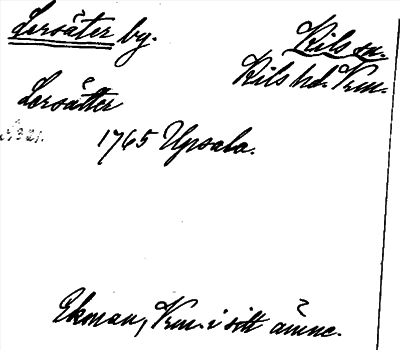 Lersäter by.
Kils sn.
Kils hd. Vrm.
Lersätter
1765 Upsala.
Ekman, Vrm. i sitt ämne.